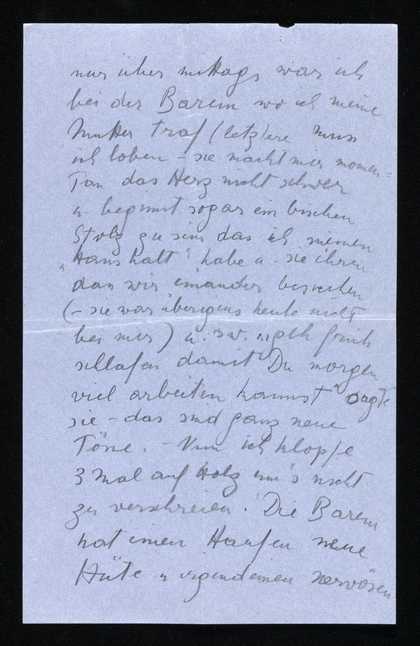 nur über mittags war ich
bei der Barem wo ich meine
Mutter traf (letztere muss
ich loben – sie macht mir momen=
tan das Herz nicht schwer
u. beginnt sogar ein bischen
Stolz zu sein das ich meinen
"Haushalt" habe u. sie ihren
dan wir einander besuchen
(– sie war überigens heute nicht
bei mir) u.s.w. "geh früh
schlafen damit Du morgen
viel arbeiten kannst" sagte
sie – das sind ganz neue
Töne. – Nun ich klopfe
3 mal auf Holz um's nicht
zu verschreien! Die Barem
hat einen Haufen neue
Hüte u irgendeinen nervösen